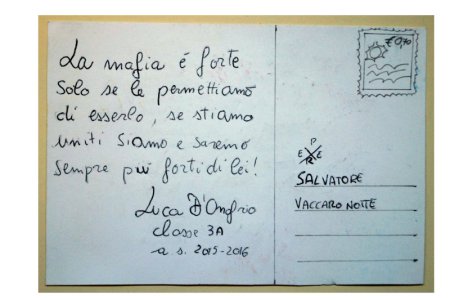 La mafia é forte
Solo se le permettiamo
di esserlo, se stiamo
uniti siamo e saremo
sempre più forti di lei!
Luca D'Onofrio
classe 3A
a s. 2015-2016
€ 0,70
PER E
SALVATORE
VACCARO NOTTE